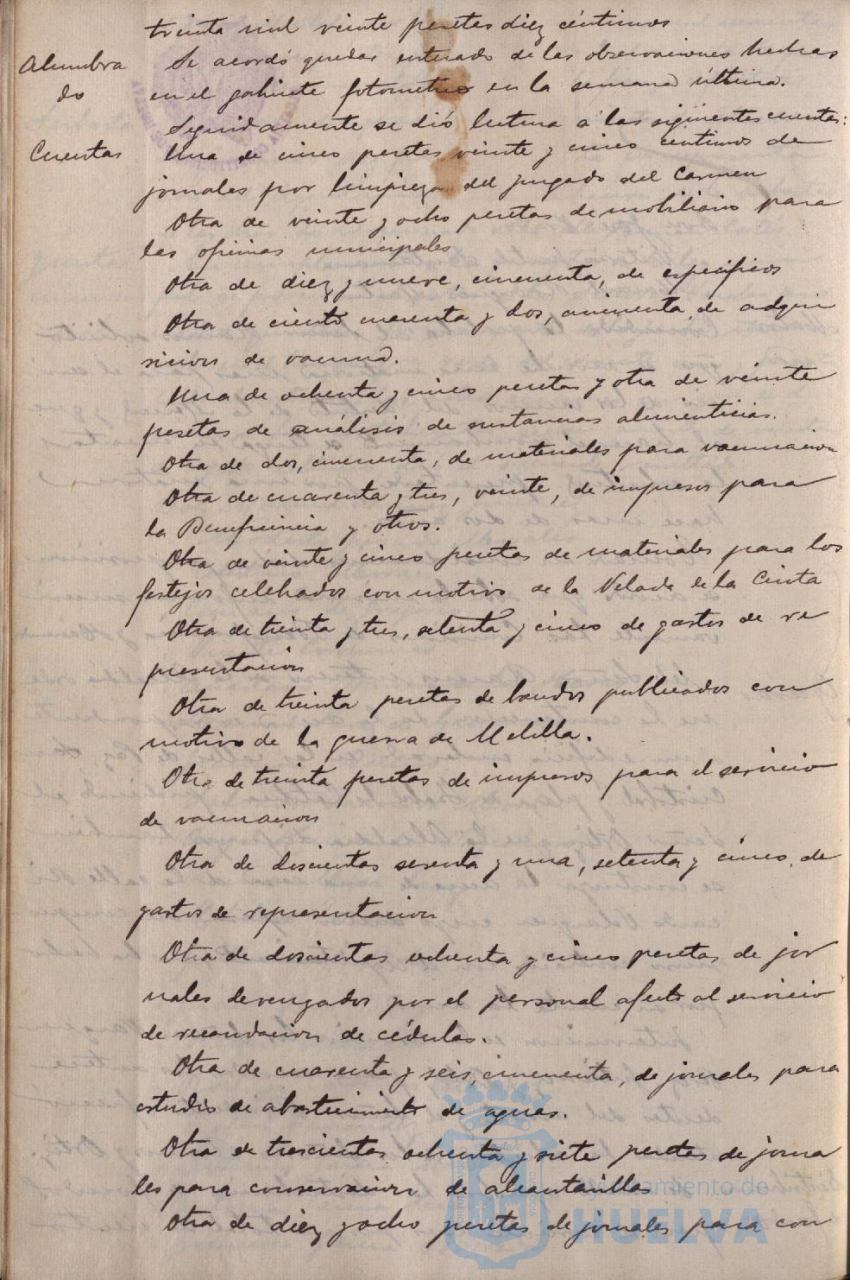 treinta mil veinte pesetas diez céntimos
Alumbra
do
Se acordó quedar enterado de las observaciones hechas
en el gabinete fotometrico en la semana última.
Seguidamente se dió lectura á las siguientes cuentas:
Cuentas
Una de cinco pesetas veinte y cinco centimos de
jornales por limpieza del juzgado del Carmen
Otra de veinte y ocho pesetas de mobiliario para
las oficinas municipales
Otra de diez y nueve, cincuenta, de especificos
Otra de ciento cuarenta y dos, cincuenta de adqui
sicion de vacuna.
Una de ochenta y cinco pesetas y otra de veinte
pesetas de análisis de sustancias alimenticias.
Otra de dos, cincuenta, de materiales para vacunacion
Otra de cuarenta y tres, veinte, de impresos para
la Beneficencia y otros.
Otra de veinte y cinco pesetas de materiales para los
festejos celebrados con motivo de la Velada de la Cinta
Otra de treinta y tres, setenta y cinco de gastos de re
presentacion
Otra de treinta pesetas de bandos publicados con
motivo de la guerra de Melilla.
Otra de treinta pesetas de impresos para el servicio
de vacunacion
Otra de discientas sesenta y una, setenta y cinco, de
gastos de representacion
Otra de doscientas ochenta y cinco pesetas de jor
nales devengados por el personal afecto al servicio
de recaudacion de cédulas.
Otra de cuarenta y seis, cincuenta, de jornales para
estudio de abastecimiento de aguas.
Otra de trescientas ochenta y siete pesetas de jorna
les para conservacion de alcantarillas
Otra de diez y ocho pesetas de jornales para con
Ayuntamiento de
HUELVA